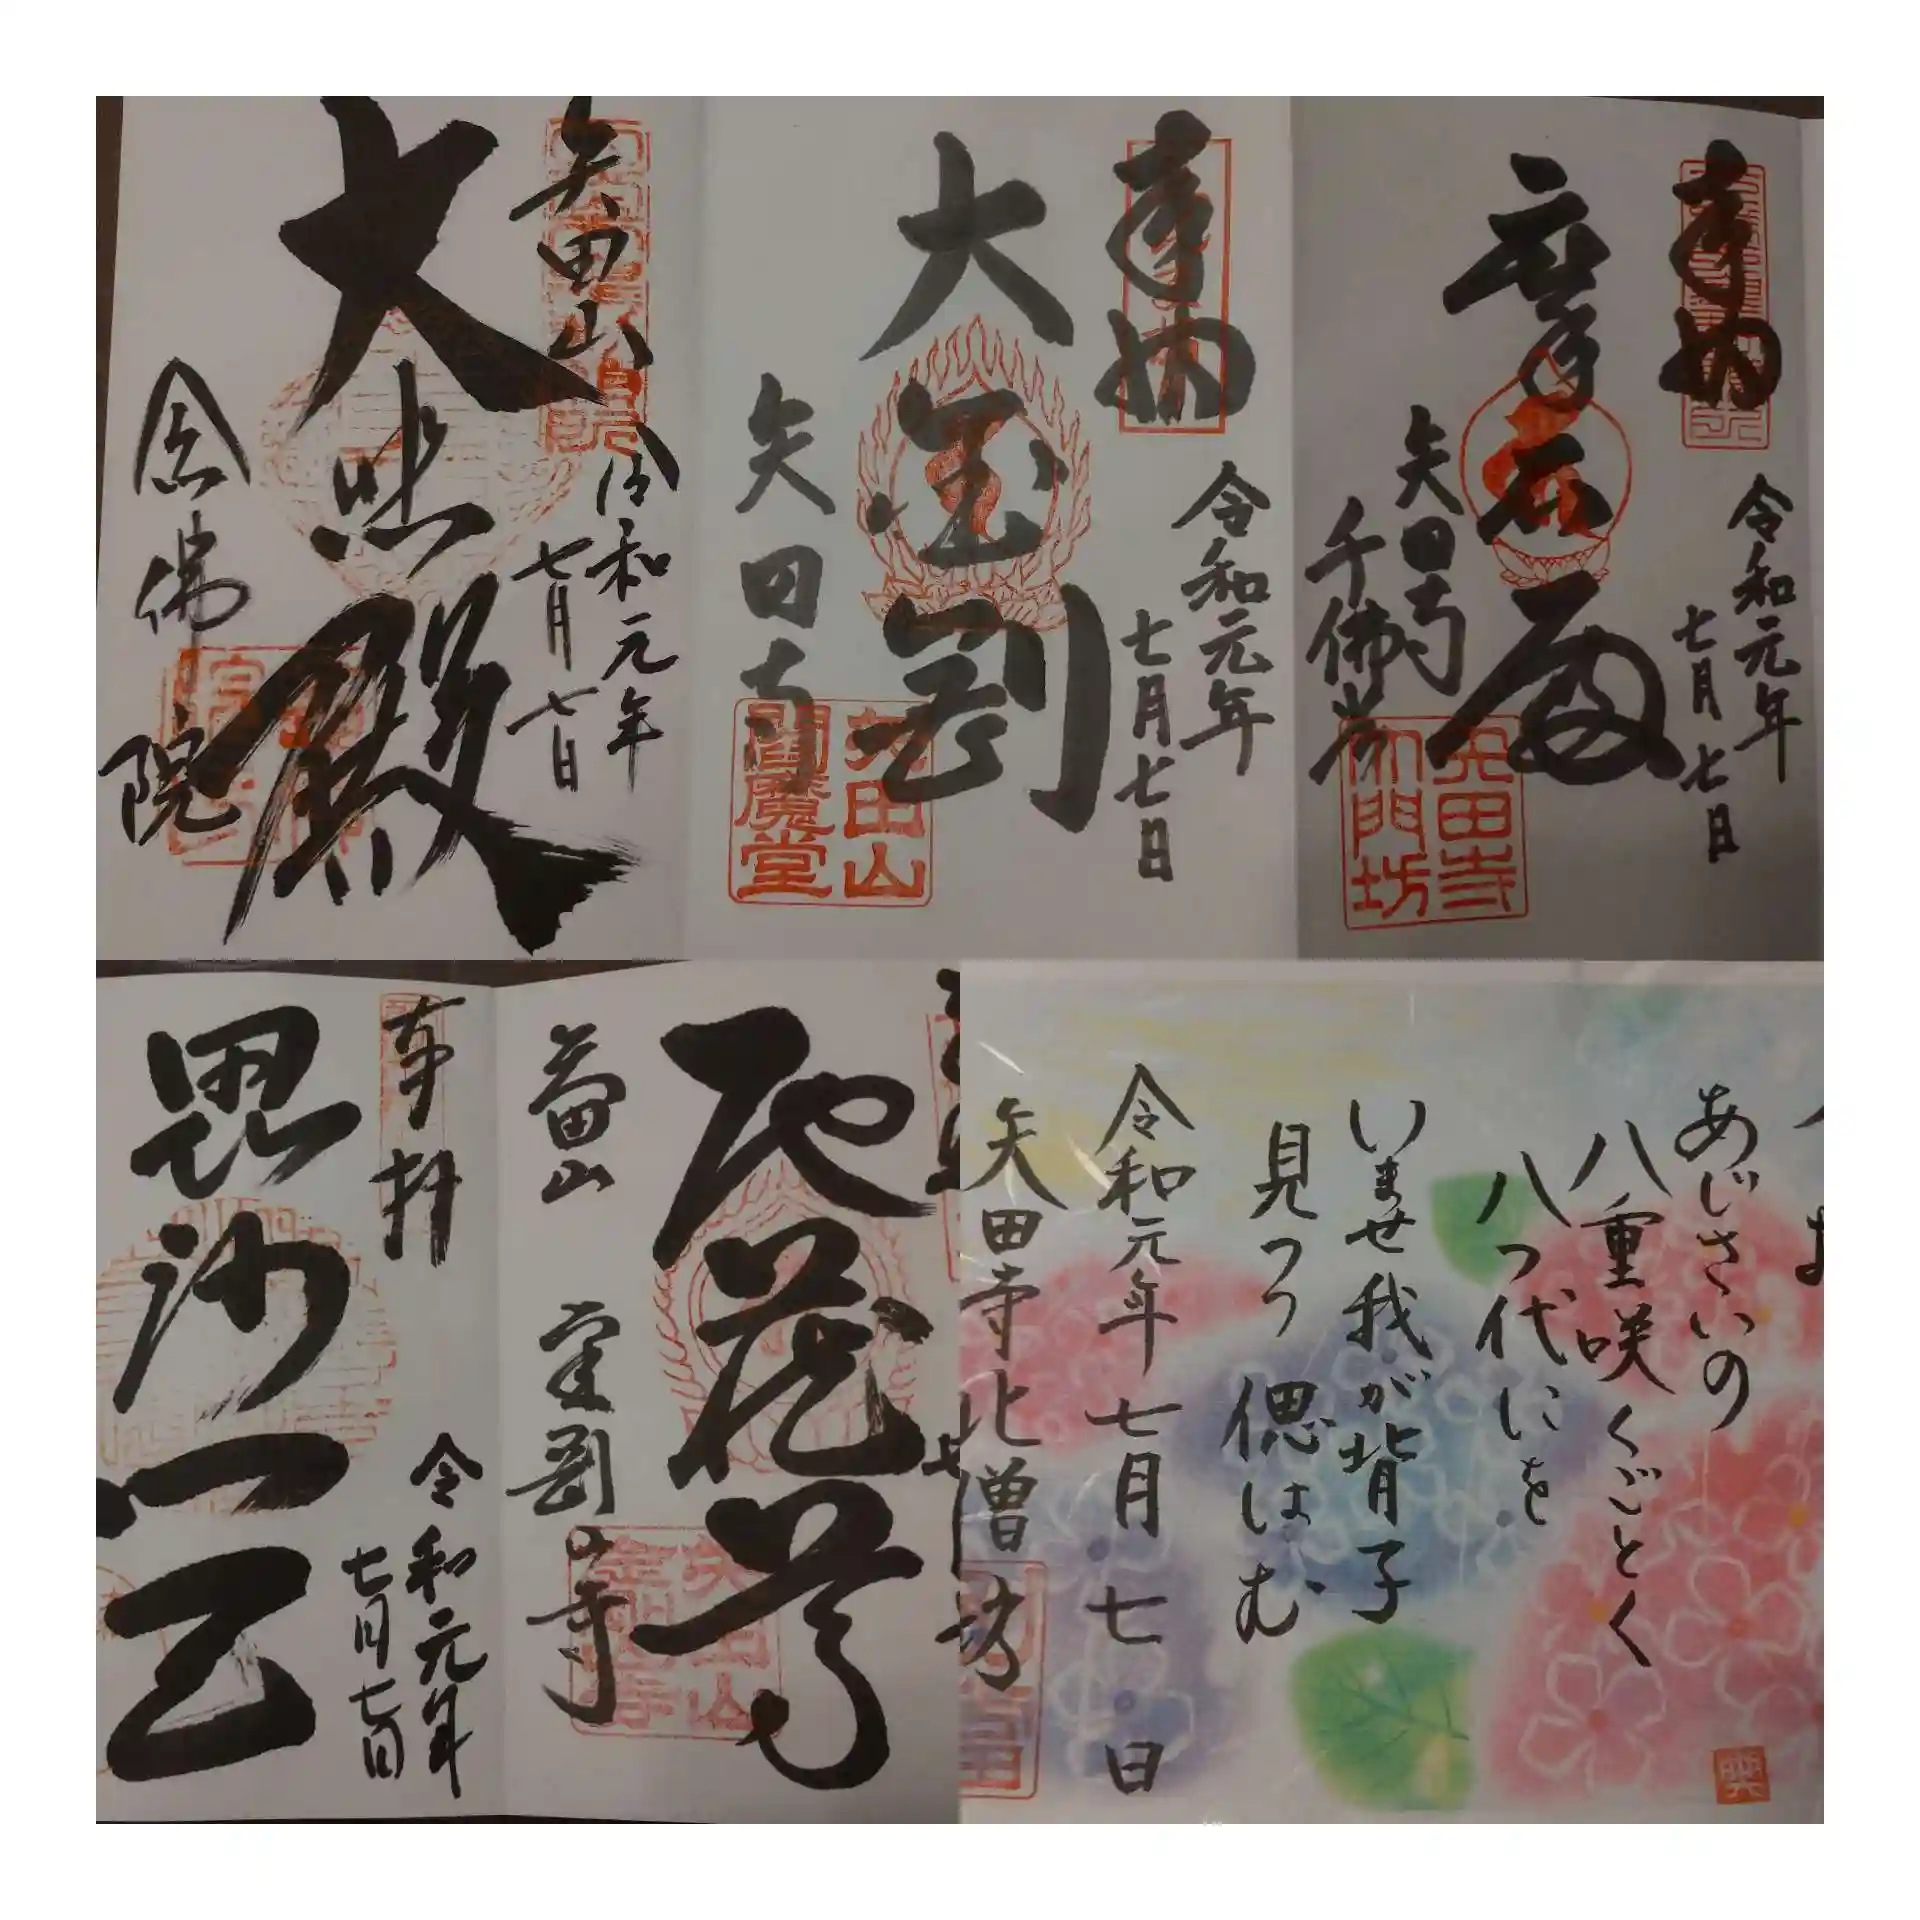 奉納
令和元年
七月七日
摩尼殿
矢田寺
千佛堂
矢田寺
大門坊
奉納
令和元年
七月七日
大金剛
矢田寺
矢田山
閻魔堂
矢田山
令和元年
七月七日
大
殿
念佛院
奉拝
令和元年
七月七日
毘沙
矢田山
金剛山寺
地蔵尊
あじさいの
八重咲くごとく
八つ代にを
いませ我が背子
見つつ偲はむ
令和元年七月七日
矢田寺北僧坊